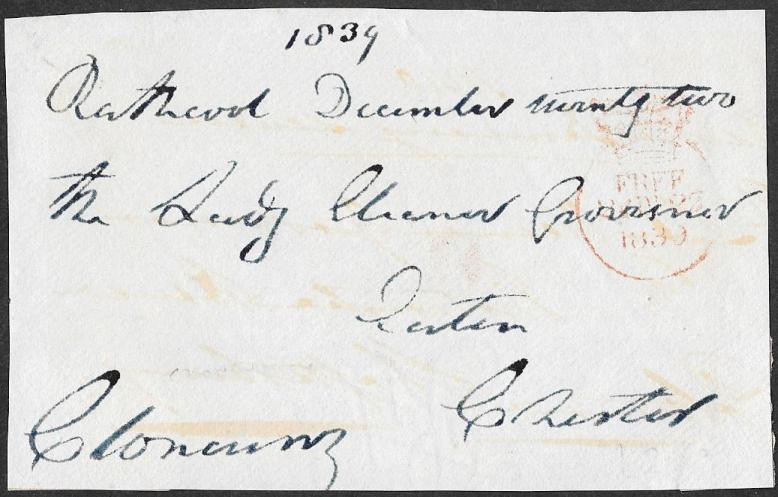 1839
Rathcool December twenty two
FREE
1839
The Lady Eleanor Grosvenor
Eaton
Chester
Cloncurry